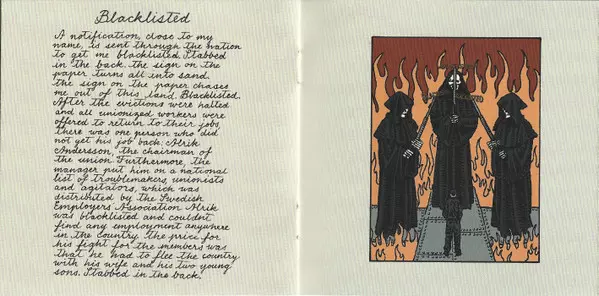 Blacklisted
A notification, close to my
name, is sent through the nation
to get me blacklisted. Stabbed
in the back. the sign on the
paper turns all into sand.
the sign on the paper chases
me out of this land. Blacklisted.
After the evictions were halted
and all unionized workers were
offered to return to their jobs,
there was one person who did
not get his job back. Alrik
Andersson, the chairman of
the union. Furthermore, the
manager put him on a national
list of troublemakers, unionists
and agitators, which was
distributed by the Swedish
Employers' Association. Alrik
was blacklisted and couldnt
find any employment anywhere
in the country. the price for
his fight for the members was
that he had to flee the country
with his wife and his two young
sons. Stabbed in the back.